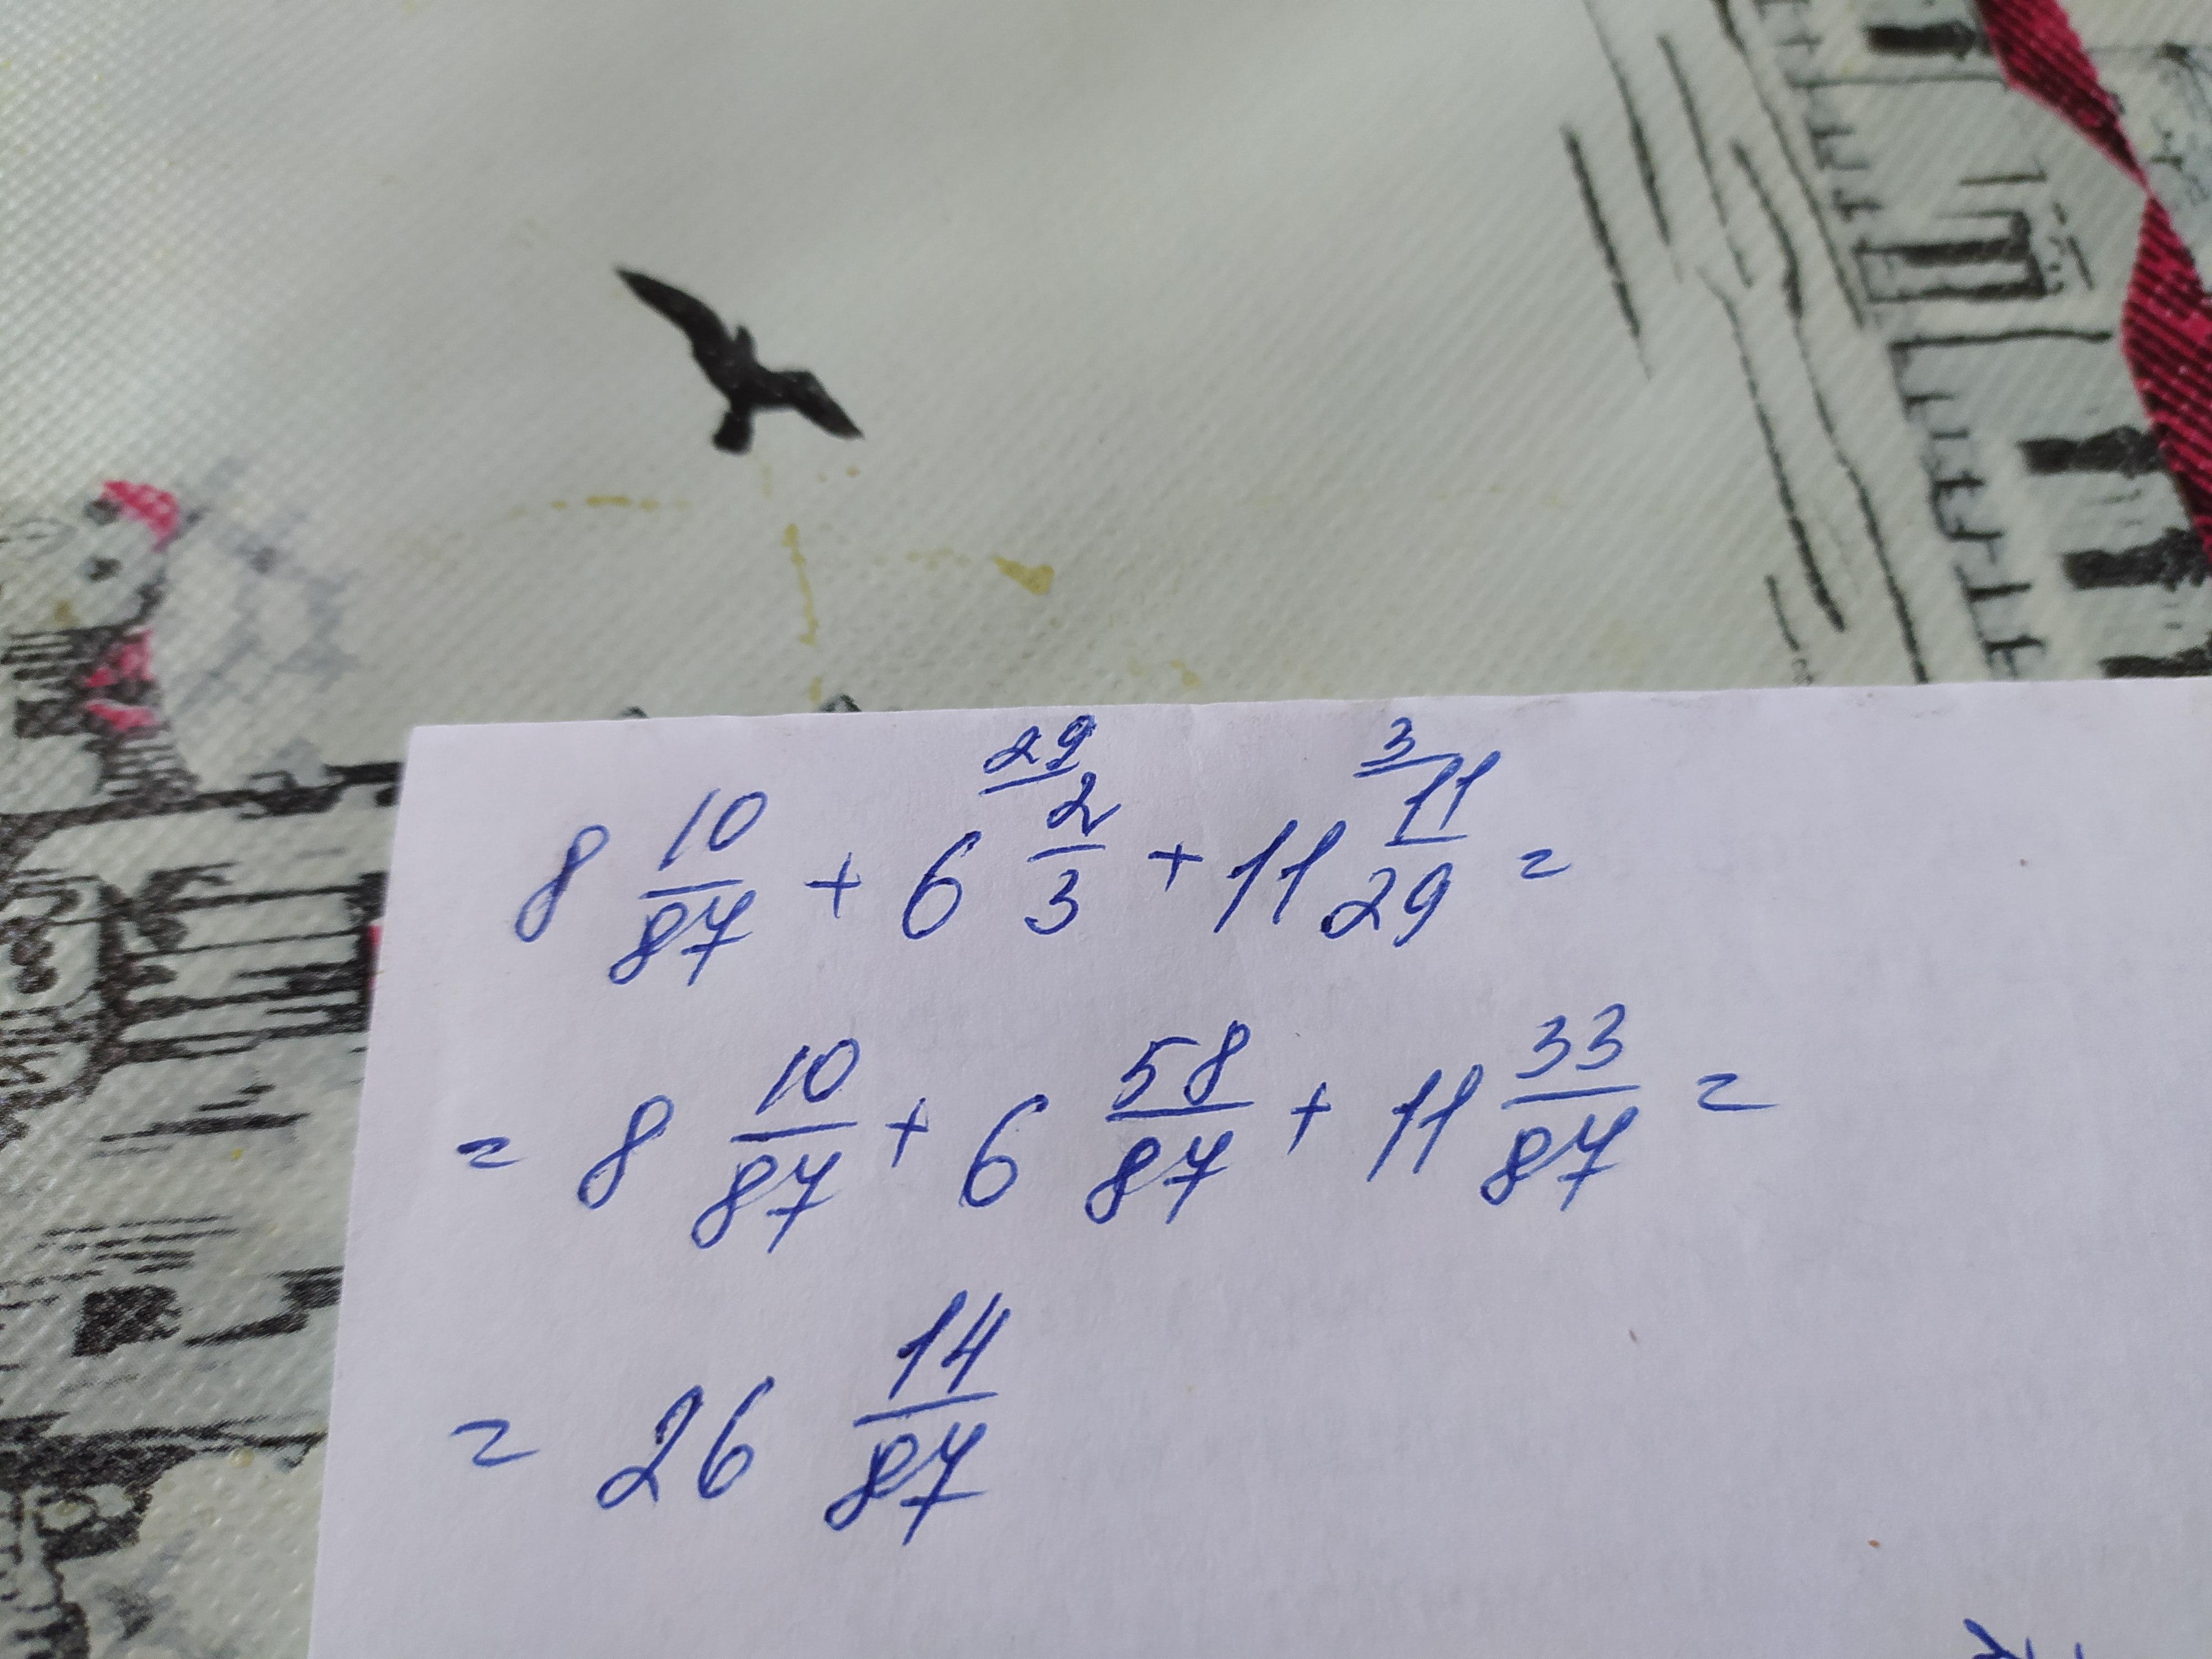 8 10/87 + 6 29 2/3 + 11 3 11/29 =
= 8 10/87 + 6 58/87 + 11 33/87 =
= 26 14/87